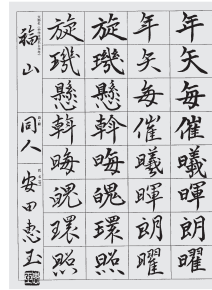 年矢毎催曦暉朗曜
年矢毎催曦暉朗曜
旋璣懸斡晦魄環照
旋璣懸斡晦魄環照
福山 同人 安田恵玉